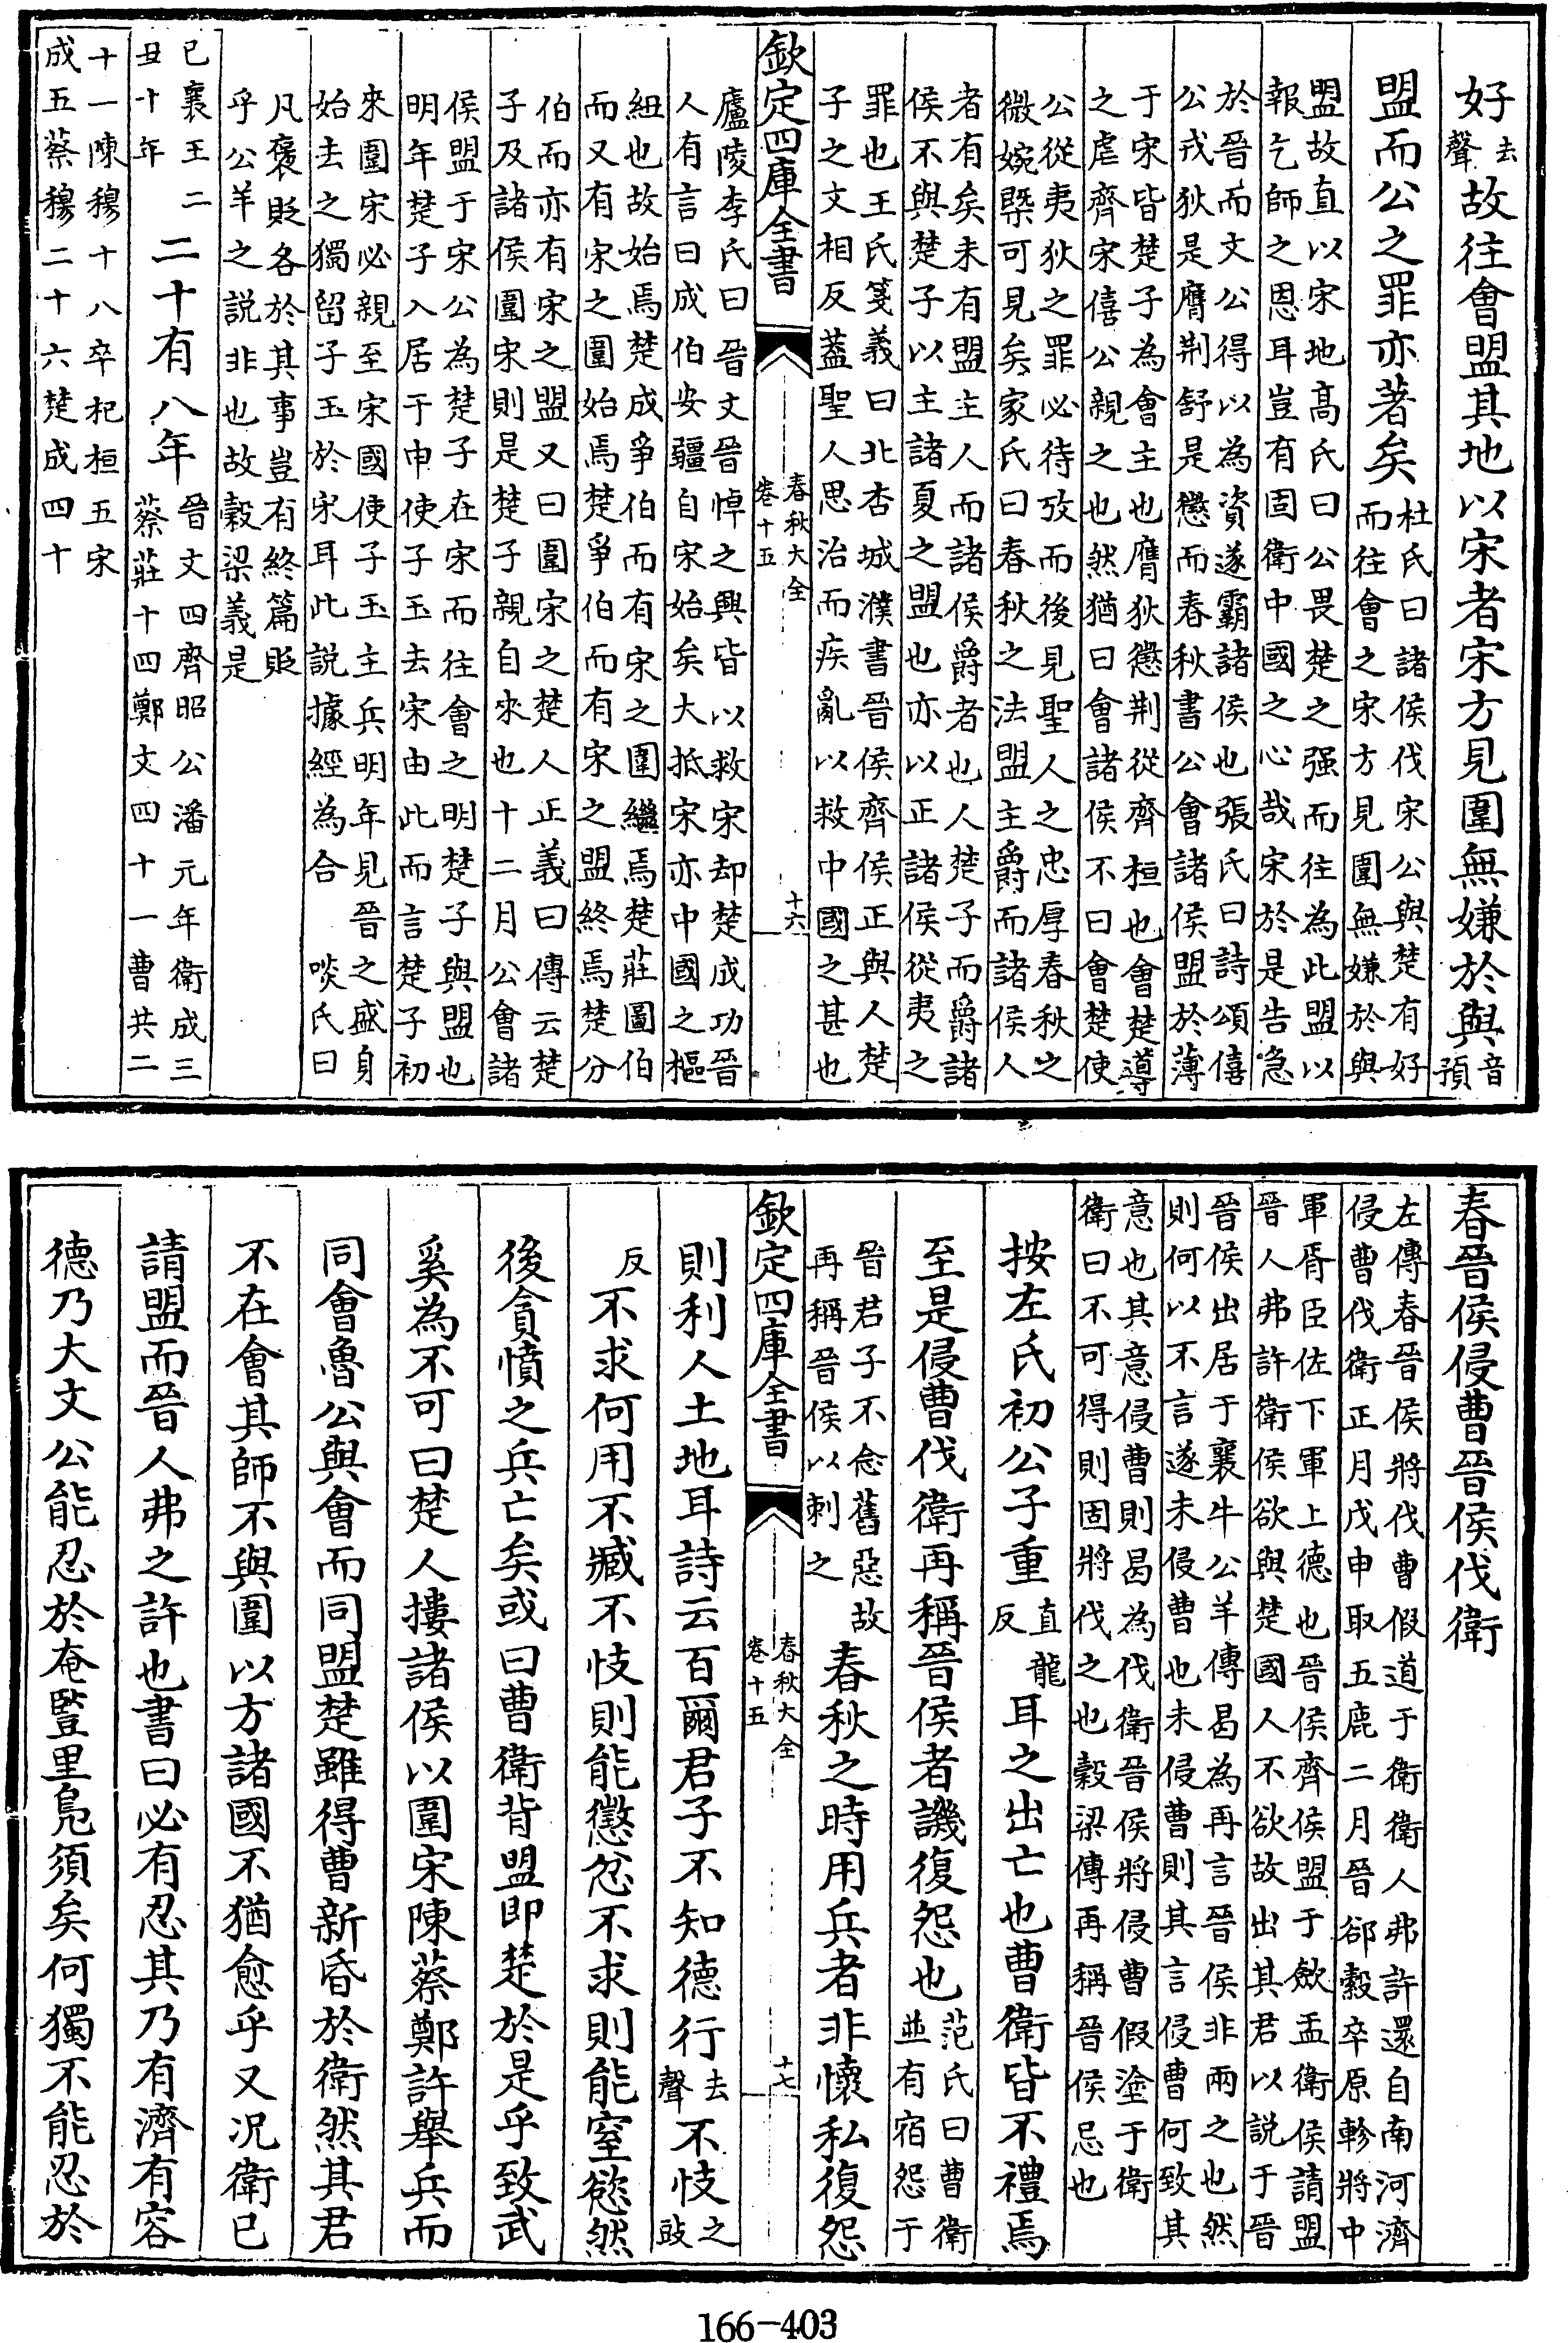 好去聲故往會盟其地以宋者宋方見圍無嫌於與音預
盟而公之罪亦著矣杜氏曰諸侯伐宋公與楚有好而往會之宋方見圍無嫌於與
盟故直以宋地高氏曰公畏楚之强而往為此盟以
報乞師之恩耳豈有固衛中國之心哉宋於是告急
於晉而文公得以為資遂霸諸侯也張氏曰詩頌僖
公戎狄是膺荆舒是懲而春秋書公會諸侯盟於薄
于宋皆楚子為會主也膺狄懲荆從齊桓也會楚導
之虐齊宋僖公親之也然猶曰會諸侯不曰會楚使
公從夷狄之罪必待攷而後見聖人之忠厚春秋之
微婉槩可見矣家氏曰春秋之法盟主爵而諸侯人
者有矣未有盟主人而諸侯爵者也人楚子而爵諸
侯不與楚子以主諸夏之盟也亦以正諸侯從夷之
罪也王氏箋義曰北杏城濮書晉侯齊侯正與人楚
子之文相反蓋聖人思治而疾亂以救中國之甚也
欽定四庫全書 春秋大全卷十五 十六
廬陵李氏曰晉文晉悼之興皆以救宋却楚成功晉
人有言曰成伯安疆自宋始矣大抵宋亦中國之樞
紐也故始焉楚成爭伯而有宋之圍繼焉楚莊圖伯
而又有宋之圍始焉楚爭伯而有宋之盟終焉楚分
伯而亦有宋之盟又曰圍宋之楚人正義曰傳云楚
子及諸侯圍宋則是楚子親自來也十二月公會諸
侯盟于宋公為楚子在宋而往會之明楚子與盟也
明年楚子入居于申使子玉去宋由此而言楚子初
來圍宋必親至宋國使子玉主兵明年見晉之盛身
始去之獨留子玉於宋耳此説據經為合 啖氏曰
凡褒貶各於其事豈有終篇貶
乎公羊之説非也故穀梁義是
己襄王二
丑十年 二十有八年晉文四齊昭公潘元年衛成三
蔡莊十四鄭文四十一曹共二
十一陳穆十八卒杞桓五宋
成五蔡穆二十六楚成四十
春晉侯侵曹晉侯伐衛
左傳春晉侯將伐曹假道于衛衛人弗許還自南河濟
侵曹伐衛正月戊申取五鹿二月晉郤縠卒原軫將中
軍胥臣佐下軍上德也晉侯齊侯盟于歛盂衛侯請盟
晉人弗許衛侯欲與楚國人不欲故出其君以説于晉
晉侯出居于襄牛公羊傳曷為再言晉侯非兩之也然
則何以不言遂未侵曹也未侵曹則其言侵曹何致其
意也其意侵曹則曷為伐衛晉侯將侵曹假塗于衛
衛曰不可得則固將伐之也穀梁傳再稱晉侯忌也
按左氏初公子重直龍反耳之出亡也曹衛皆不禮焉
至是侵曹伐衛再稱晉侯者譏復怨也范氏曰曹衛並有宿怨于
晉君子不念舊惡故再稱晉侯以刺之春秋之時用兵者非懷私復怨
欽定四庫全書 春秋大全卷十五 十七
則利人土地耳詩云百爾君子不知德行去聲不忮之豉
反不求何用不臧不忮則能懲忿不求則能窒慾然
後貪憤之兵亡矣或曰曹衛背盟即楚於是乎致武
奚為不可曰楚人摟諸侯以圍宋陳蔡鄭許舉兵而
同會魯公與會而同盟楚雖得曹新昏於衛然其君
不在會其師不與圍以方諸國不猶愈乎又況衛已
請盟而晉人弗之許也書曰必有忍其乃有濟有容
德乃大文公能忍於奄豎里鳧須矣何獨不能忍於
166-403